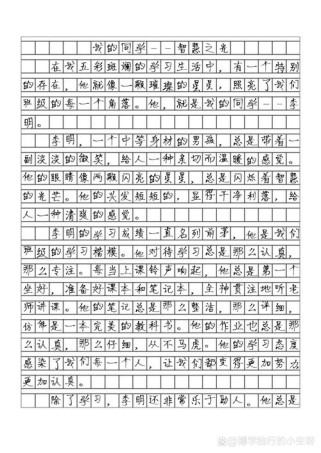 我的同学--智慧之光
在我五彩斑斓的学习生活中，有一个特别
的存在，他就像一颗璀璨的星星，照亮了我们
班级的每一个角落。他，就是我的同学--李
明。
李明，一个中等身材的男孩，总是带着一
副淡淡的微笑，给人一种亲切而温暖的感觉。
他的眼睛像两颗闪亮的星星，总是闪烁着智慧
的光芒。他的头发短短的，显得干净利落，给
人一种清爽的感觉。
李明的学习成绩一直名列前茅，他是我们
班级的学习楷模。他对待学习总是那么认真，
那么专注。每当上课铃声响起，他总是第一个
坐好，准备好课本和笔记本，全神贯注地听老
师讲课。他的笔记总是那么整洁，那么详细，
仿佛是一本完美的教科书。他的作业也总是那
么认真，那么仔细，从不马虎。他的学习态度
感染了我们每一个人，让我们都变得更加努力
更加认真。
除了学习，李明还非常乐于助人。他总是
@博学独行的小生郭